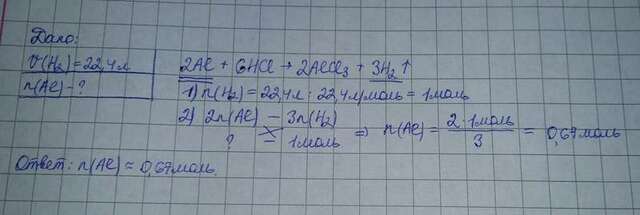 Дано:
V(H₂)=22,4л
n(Al)-?
2Al + 6HCl → 2AlCl₃ + 3H₂↑
1) n(H₂) = 22,4л : 22,4л/моль = 1моль
2) 2n(Al) — 3n(H₂)
? — 1моль
⇒ n(Al) = 2·1моль/3 = 0,67моль
Ответ: n(Al) = 0,67моль